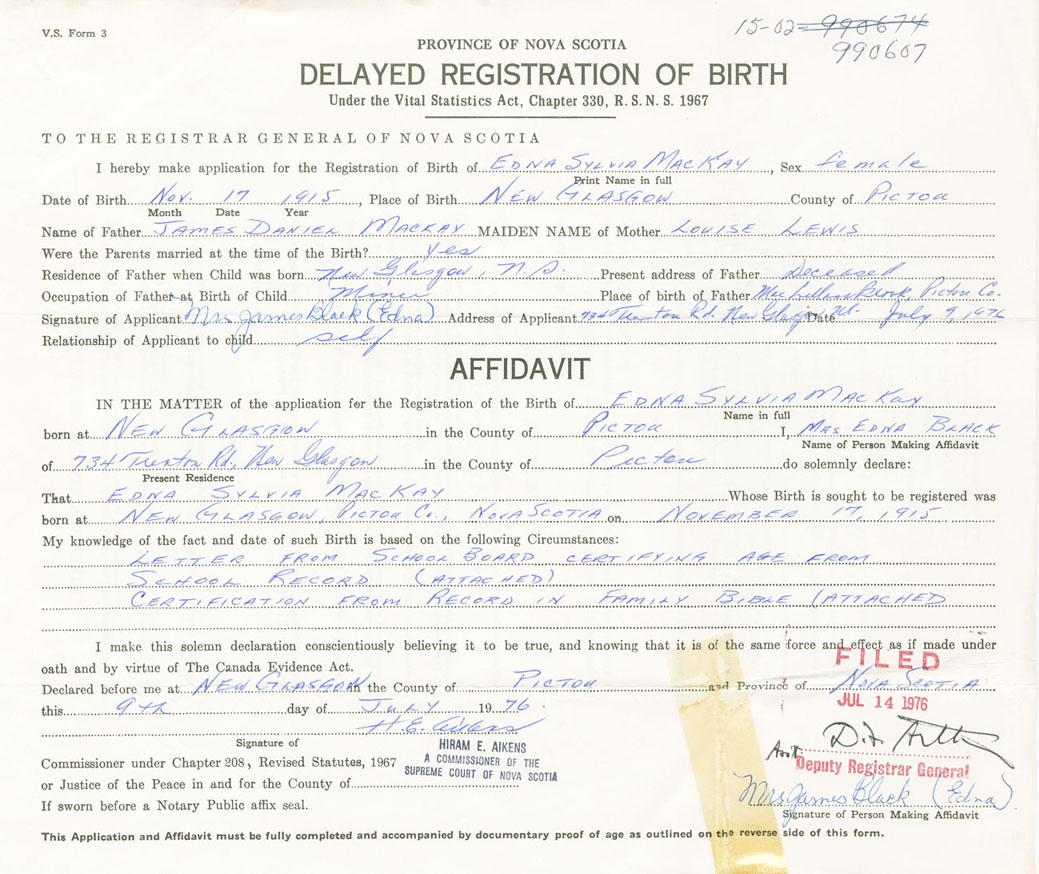 V.S. Form 3
15-02-990674
990607
PROVINCE OF NOVA SCOTIA
DELAYED REGISTRATION OF BIRTH
Under the Vital Statistics Act, Chapter 330, R.S.N.S. 1967
TO THE REGISTRAR GENERAL OF NOVA SCOTIA
I hereby make application for the Registration of Birth of EDNA SYLVIA MACKAY, Sex female
Print Name in full
Date of Birth Nov. 17 1915, Place of Birth NEW GLASGOW County of PICTOU
Month Date Year
Name of Father JAMES DANIEL MACKAY MAIDEN NAME of Mother LOUISE LEWIS
Were the Parents married at the time of the Birth? yes
Residence of Father when Child was born New Glasgow, N.S. Present address of Father Deceased
Occupation of Father at Birth of Child Miner Place of birth of Father Pictou Co.
Signature of Applicant Mrs James Black (Edna) Address of Applicant 734 Trenton Rd. New Glasgow N.S. Date July 9, 1976
Relationship of Applicant to child self
AFFIDAVIT
IN THE MATTER of the application for the Registration of the Birth of EDNA SYLVIA MACKAY
Name in full
born at NEW GLASGOW in the County of PICTOU I, MRS EDNA BLACK
Name of Person Making Affidavit
of 734 Trenton Rd., New Glasgow in the County of Pictou do solemnly declare:
Present Residence
That EDNA SYLVIA MACKAY Whose Birth is sought to be registered was
born at NEW GLASGOW, PICTOU CO., NOVA SCOTIA on NOVEMBER 17, 1915
My knowledge of the fact and date of such Birth is based on the following Circumstances:
LETTER FROM SCHOOL BOARD CERTIFYING AGE FROM
SCHOOL RECORD (ATTACHED)
CERTIFICATION FROM RECORD IN FAMILY BIBLE (ATTACHED
I make this solemn declaration conscientiously believing it to be true, and knowing that it is of the same force and effect as if made under
oath and by virtue of The Canada Evidence Act.
FILED
Declared before me at NEW GLASGOW in the County of PICTOU and Province of NOVA SCOTIA
JUL 14 1976
this 9th day of JULY 1976.
H.E. Aikens
Signature of
HIRAM E. AIKENS
A COMMISSIONER OF THE
SUPREME COURT OF NOVA SCOTIA
Commissioner under Chapter 208, Revised Statutes, 1967
or Justice of the Peace in and for the County of
If sworn before a Notary Public affix seal.
Deputy Registrar General
Mrs James Black (Edna).
Signature of Person Making Affidavit
This Application and Affidavit must be fully completed and accompanied by documentary proof of age as outlined on the reverse side of this form.